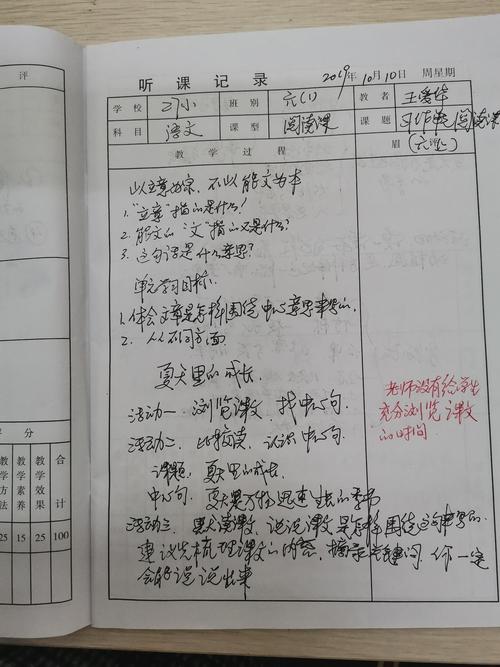 评
听课记录 2019年10月10日 周星期
学校 刁小 班别 六(1) 教者 王爱华
科目 语文 课型 阅读课 课题 习作单元阅读课
(六上)
教学过程 眉
以立意为宗，不以能文为本
1. "立意"指的是什么？
2. 能文的"文"指的又是什么？
3. 这句话是什么意思？
单元学习目标：
1. 体会文章是怎样围绕中心意思来写的。
2. 从不同方面
夏天里的成长
活动一：浏览课文，找中心句。
活动二：比摘读，认识中心句
课题：夏天里的成长
中心句：夏天是万物迅速生长的季节
活动三：默读课文，说说课文是怎样围绕这句来写的。
建议先梳理课文的内容，摘录关键词，你一定
会能说说出来
老师没有给学生
充分浏览课文
的时间
评分
教学方法 教学素养 教学效果 合计
25 15 25 100